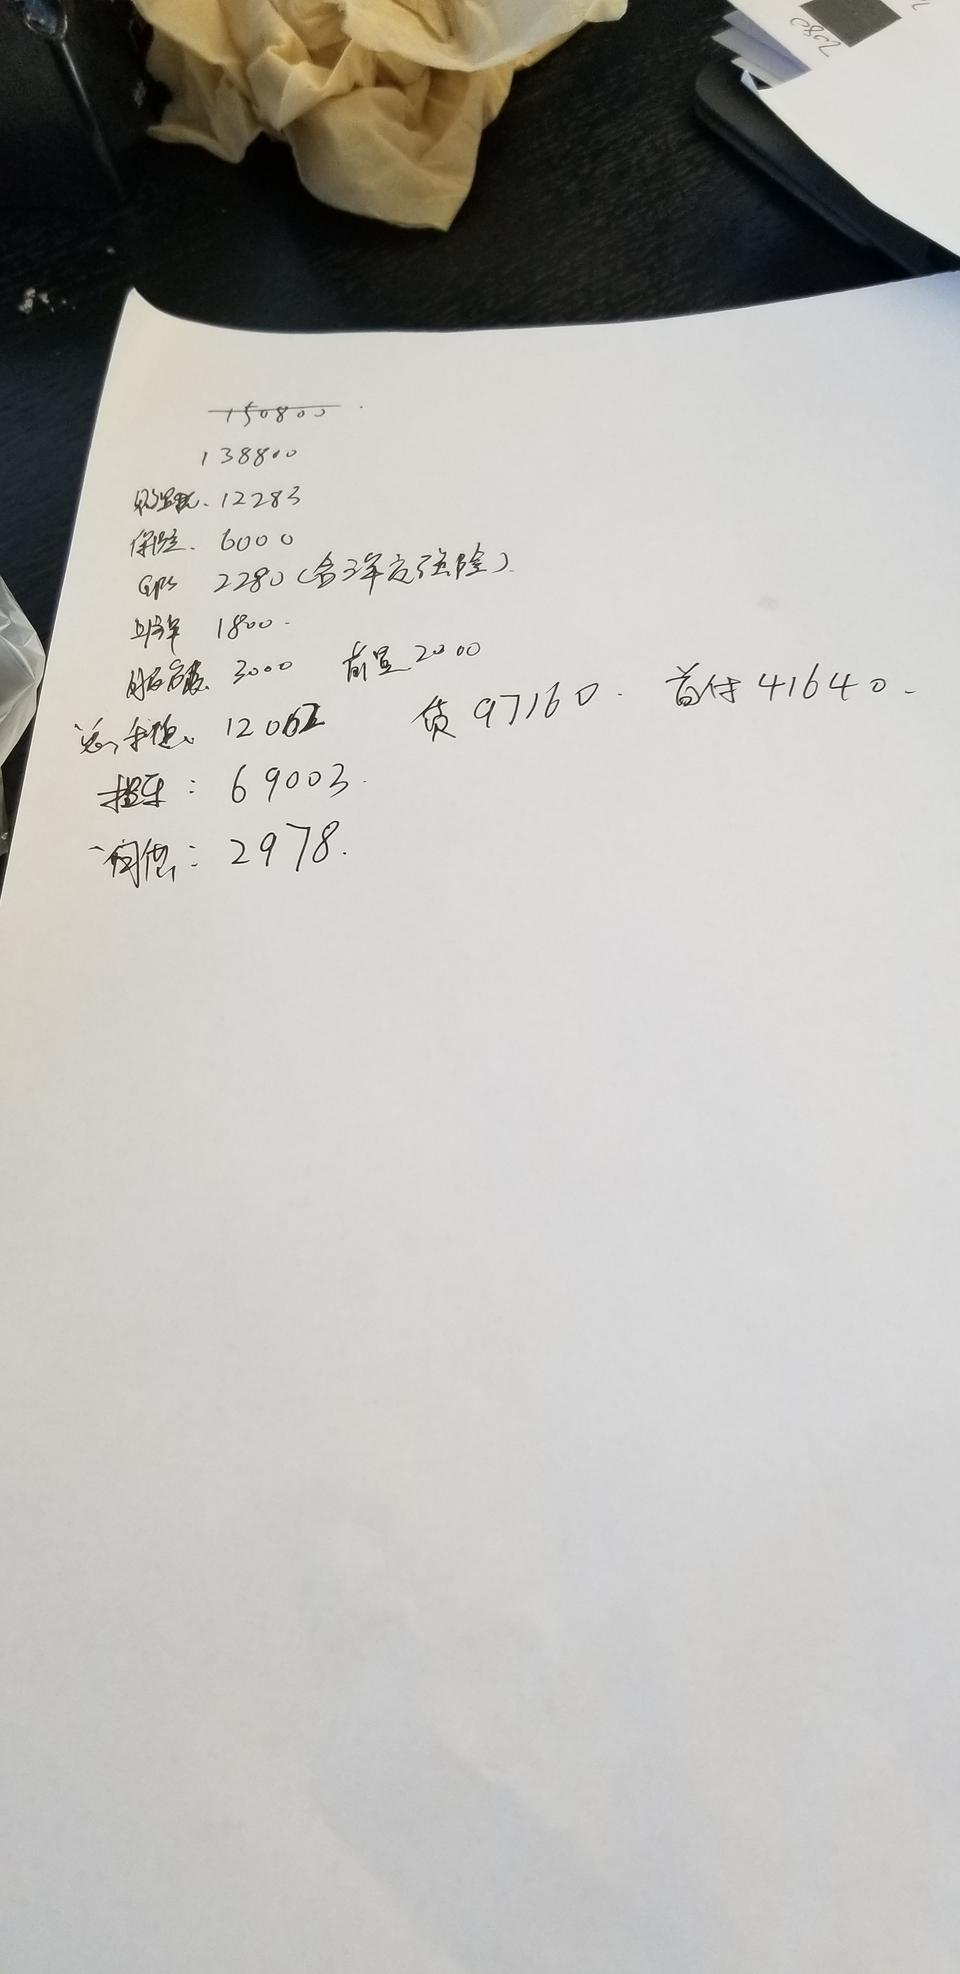 2080
150800
138800
购置税. 12283
保险. 6000
GPS 2280(含3年盗抢险).
上牌 1800.
服务费. 3000 前置2000
总利息. 12062 贷97160. 首付41640.
提车: 69003.
月供: 2978.